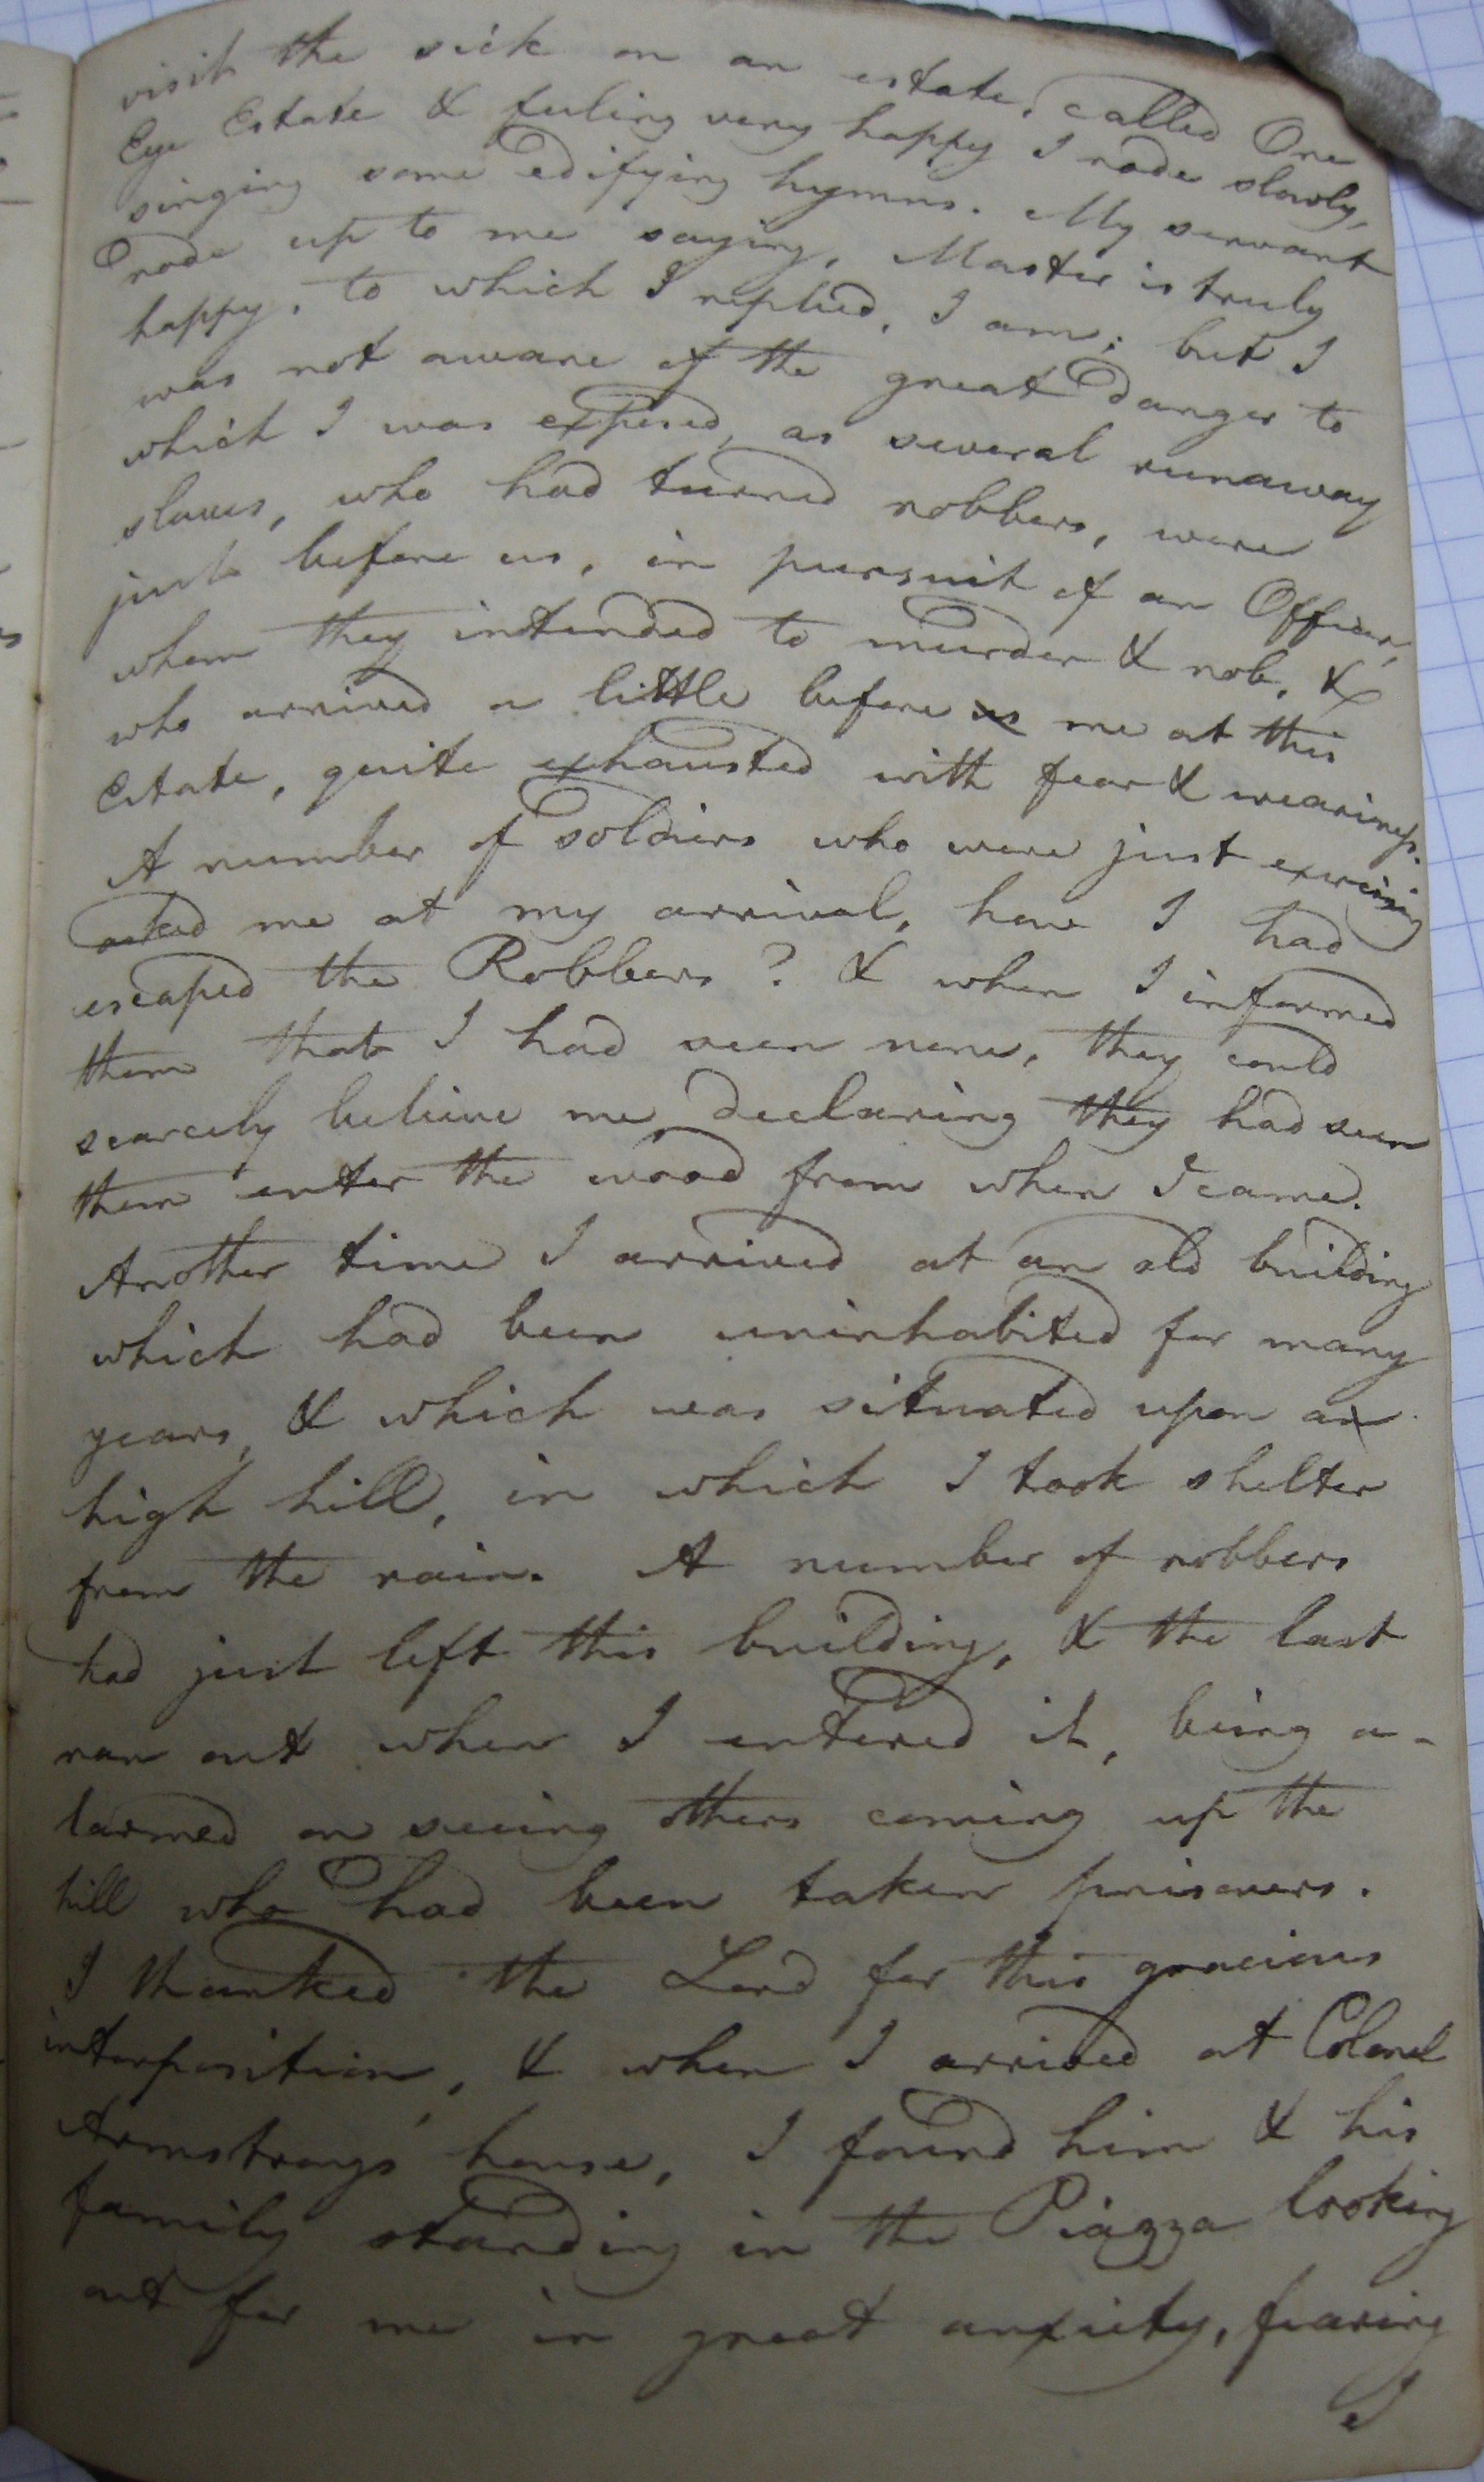 visit the sick on an estate, called One
Eye Estate & feeling very happy I rode slowly,
singing some edifying hymns. My servant
rode up to me saying, Master is truly
happy, to which I replied, I am; but I
was not aware of the great danger to
which I was exposed, as several runaway
slaves, who had turned robbers, were
just before us, in pursuit of an Officer,
whom they intended to murder & rob, &
who arrived a little before us me at this
Estate, quite exhausted with fear & weariness.
A number of soldiers who were just exercising
asked me at my arrival, how I had
escaped the Robbers? & when I informed
them that I had seen none, they could
scarcely believe me, declaring they had seen
them enter the wood from when I came.
Another time I arrived at an old building
which had been uninhabited for many
years, & which was situated upon an
high hill, in which I took shelter
from the rain. A number of robbers
had just left this building, & the last
ran out when I entered it, being a-
larmed on seeing others coming up the
hill who had been taken prisoners.
I thanked the Lord for this gracious
interposition, & when I arrived at Colonel
Armstrong's house, I found him & his
family standing in the Piazza looking
out for me in great anxiety, fearing
I